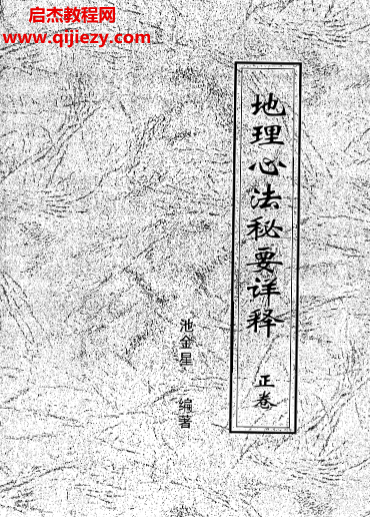 启杰教程网
www.qijiezy.com
地理心法秘要详释 正卷
池金星 编著